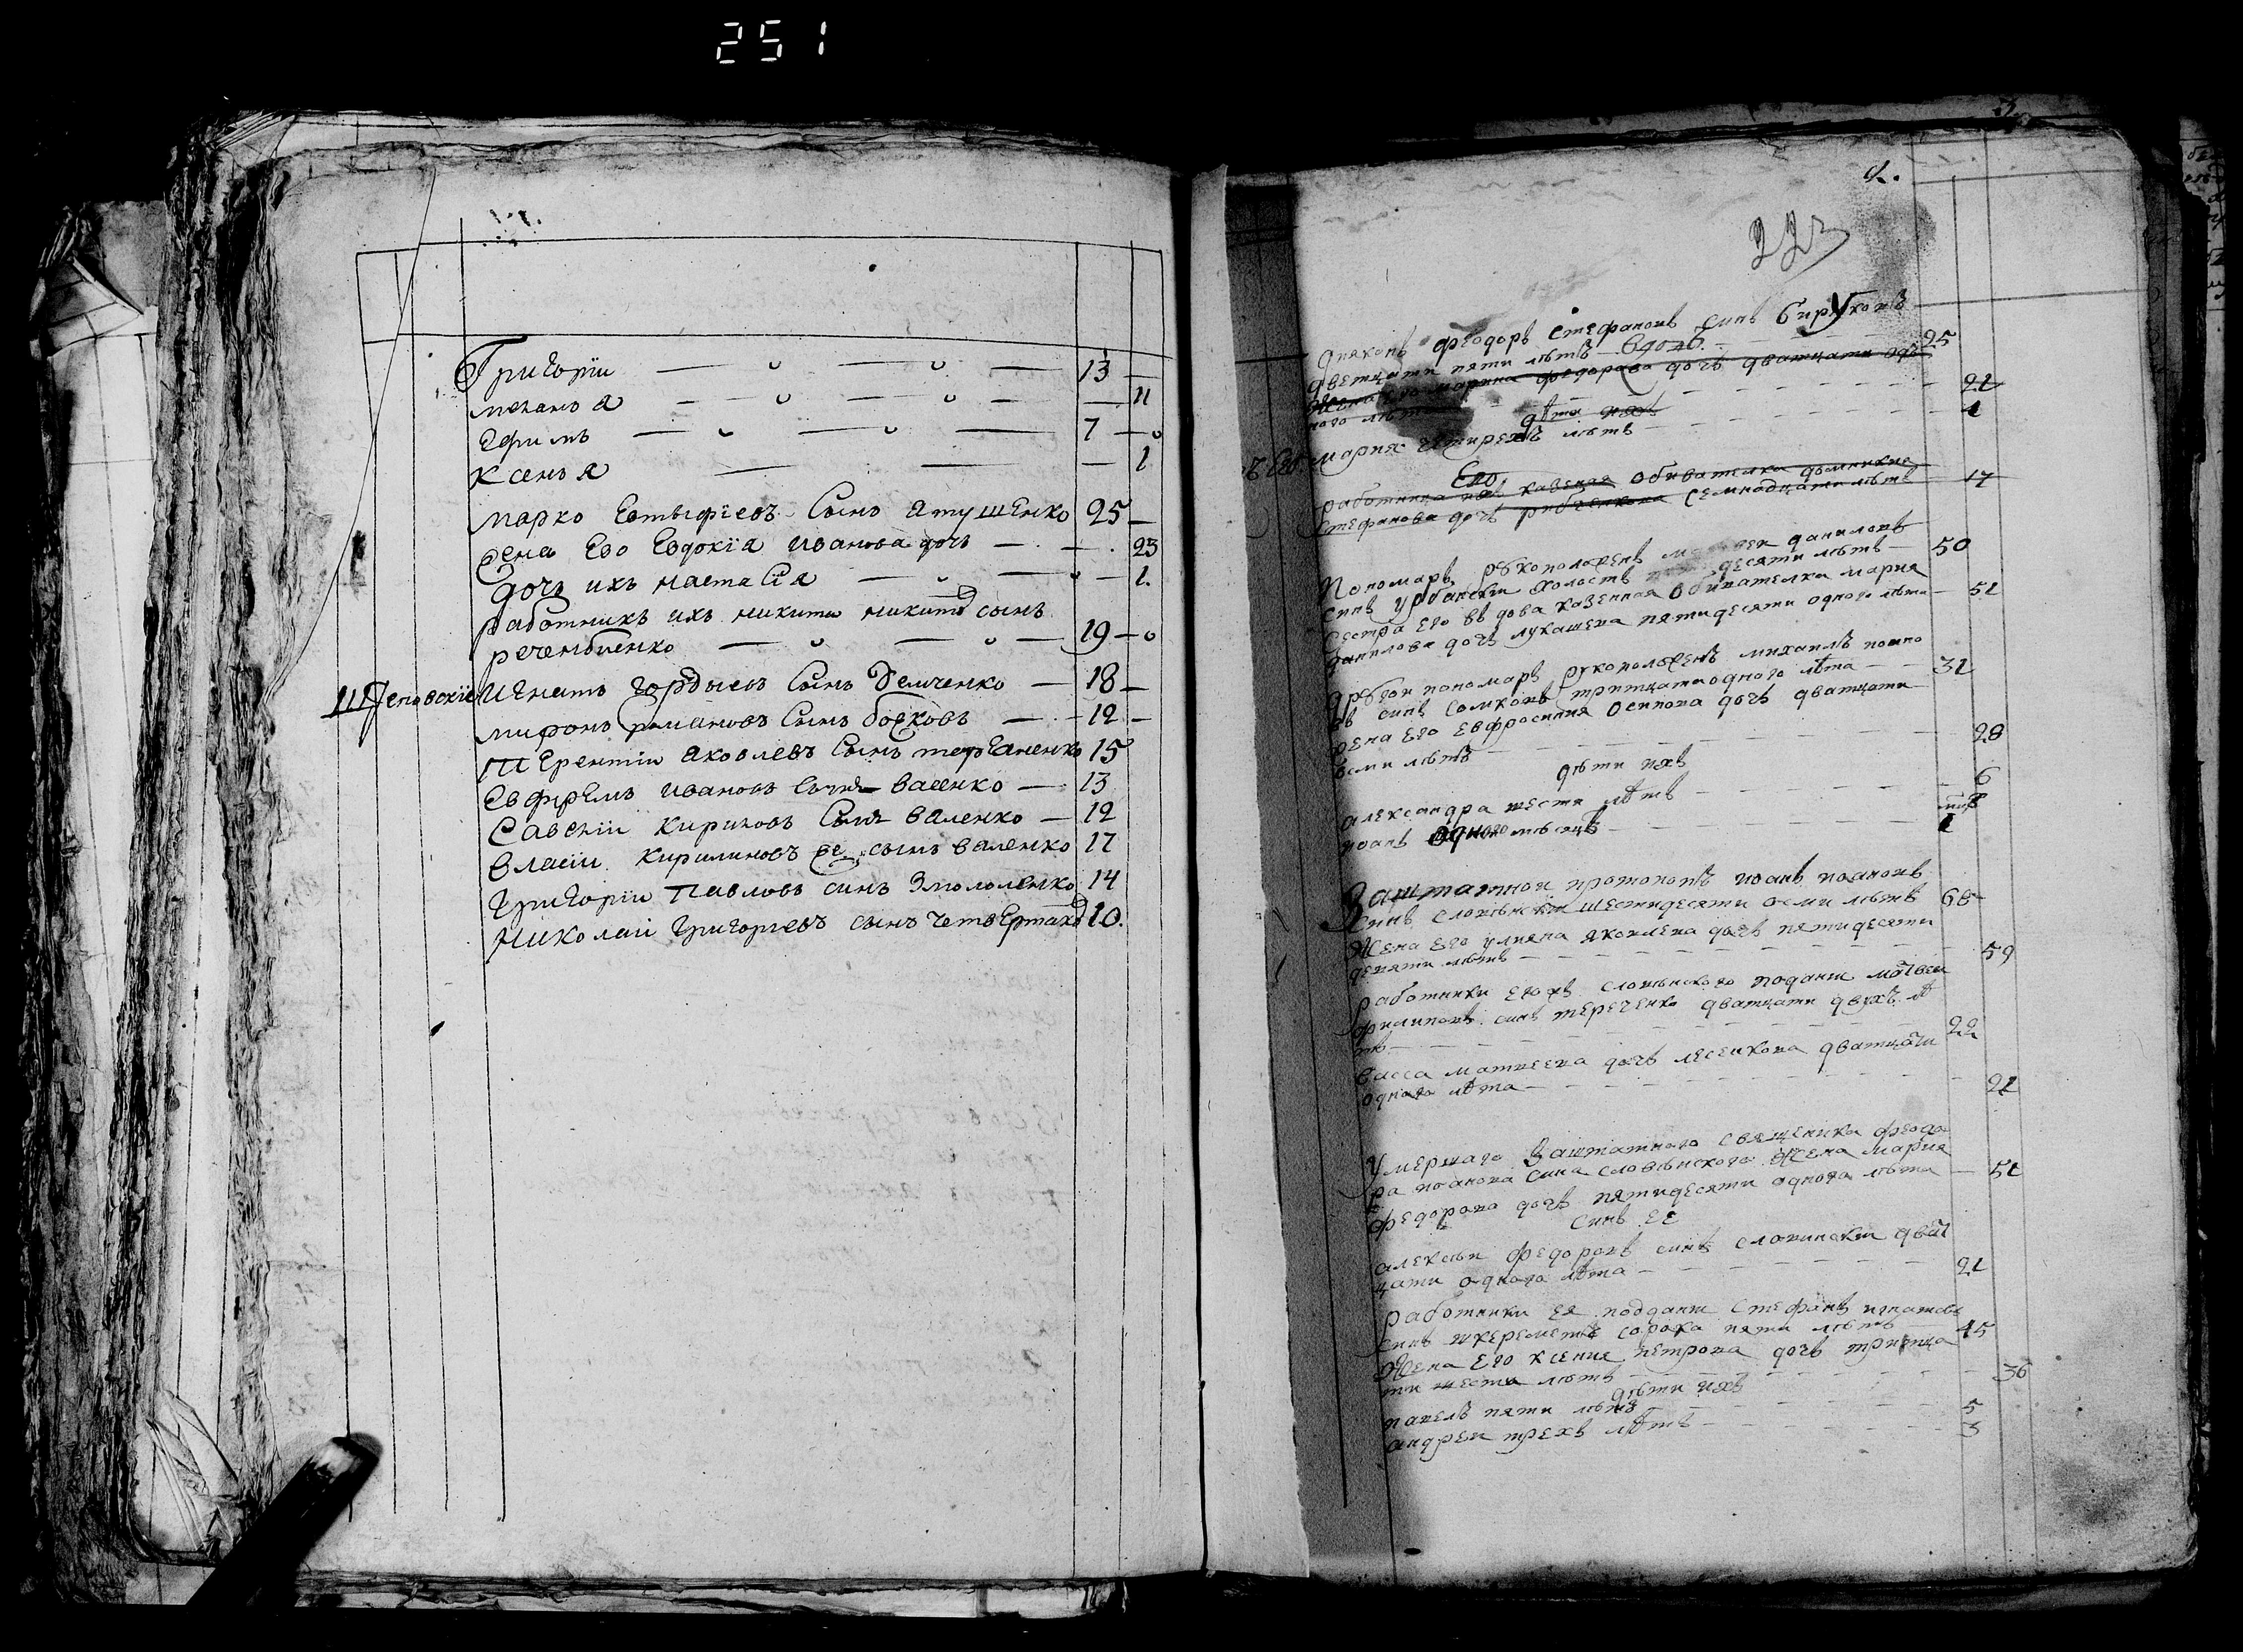 251
Григорїи 13
меланѧ 11
Ефимъ 7
Ксенѧ 1
марко Евтыфїевъ Сынъ Ятушенко 25
жена Его Евдокїя иванова дочъ 23
дочъ ихъ настасїя 1.
работникъ ихъ никита никити сынъ
19
Игнатъ гордыевъ Сынъ Демченко 18
миронъ романовъ Сынъ божковъ 12
терентїи яковлевъ Сынъ 15
Евфремъ ивановъ Сынъ Васенко 13
Савѣнїи Кириловъ Сынъ Валенко 12
власїи Кирилиновъ сынъ валенко 17
григорїи Павловъ синъ 14
николаи григорїевъ сынъ 10.
2.
дияконъ феодоръ Стефановъ Синъ Бируковъ
двятцати пяти лѣтъ вдовъ 25
жена его марина федорова дочъ дватцати од
ного лѣта 21
дѣти ихъ
мария четирехъ лѣтъ
Его
работница казеная обивателка
Стефанова дочъ семнадцати лѣтъ 17
Пономаръ рукоположенъ даниловъ
синъ Урбански холостъ десяти лѣтъ 50
Сестра его вдова казенная обивателка мария
данилова дочъ лукашева пятидесяти одного лѣта 51
Другои пономаръ рукоположенъ михаилъ
въ синъ Самковъ тритцати одного лѣта 31
жена его евфросиния осипова дочъ дватцати
осми лѣтъ 28
дѣти ихъ
александра шести лѣтъ 6
иоанъ одного мѣсяца 1
Заштатнои протопопъ иоанъ иоановъ
синъ словѣнски шестидесяти осми лѣтъ 68
Жена его улияна яковлева дочъ пятидесяти
девяти лѣтъ 59
работники его словѣнского поданіи матвеи
филиповъ синъ тереченко дватцати двухъ лѣ
тъ 22
васса матвеева дочъ лесенкова дватцати
одного лѣта 21
Умершаго Заштатного священика феодо
ра иоанова сина словѣнского жена мария
федорова дочъ пятидесяти одного лѣта 51
Синъ ее
алексѣи федоровъ синъ словински дват
цати одного лѣта 21
работники ея подданіи Стефанъ игнатовъ
синъ шкереметъ сорока пяти лѣтъ 45
Жена его ксения петрова дочъ тритца
ти шести лѣтъ 36
дѣти ихъ
павелъ пяти лѣтъ 5
андреи трехъ лѣтъ 3